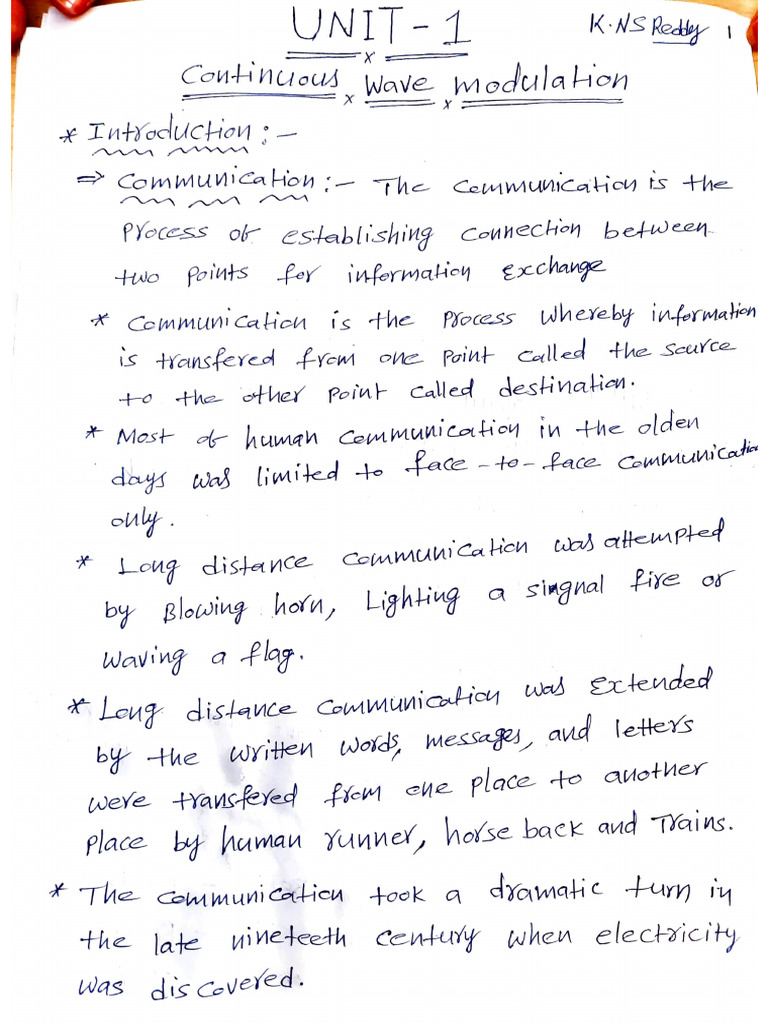 UNIT-1
K.NS Reddy 1
x
Continuous Wave modulation
x x
* Introduction:-
⇒ Communication:- The Communication is the
Process of establishing connection between
two points for information Exchange
* Communication is the process whereby information
is transfered from one point called the source
to the other point called destination.
* Most of human communication in the olden
days was limited to face-to-face communication
only.
* Long distance communication was attempted
by Blowing horn, Lighting a singnal fire or
waving a flag.
* Long distance communication was Extended
by the written words, messages, and letters
were transfered from one place to another
place by human runner, horse back and Trains.
* The communication took a dramatic turn in
the late nineteeth century when electricity
was discovered.